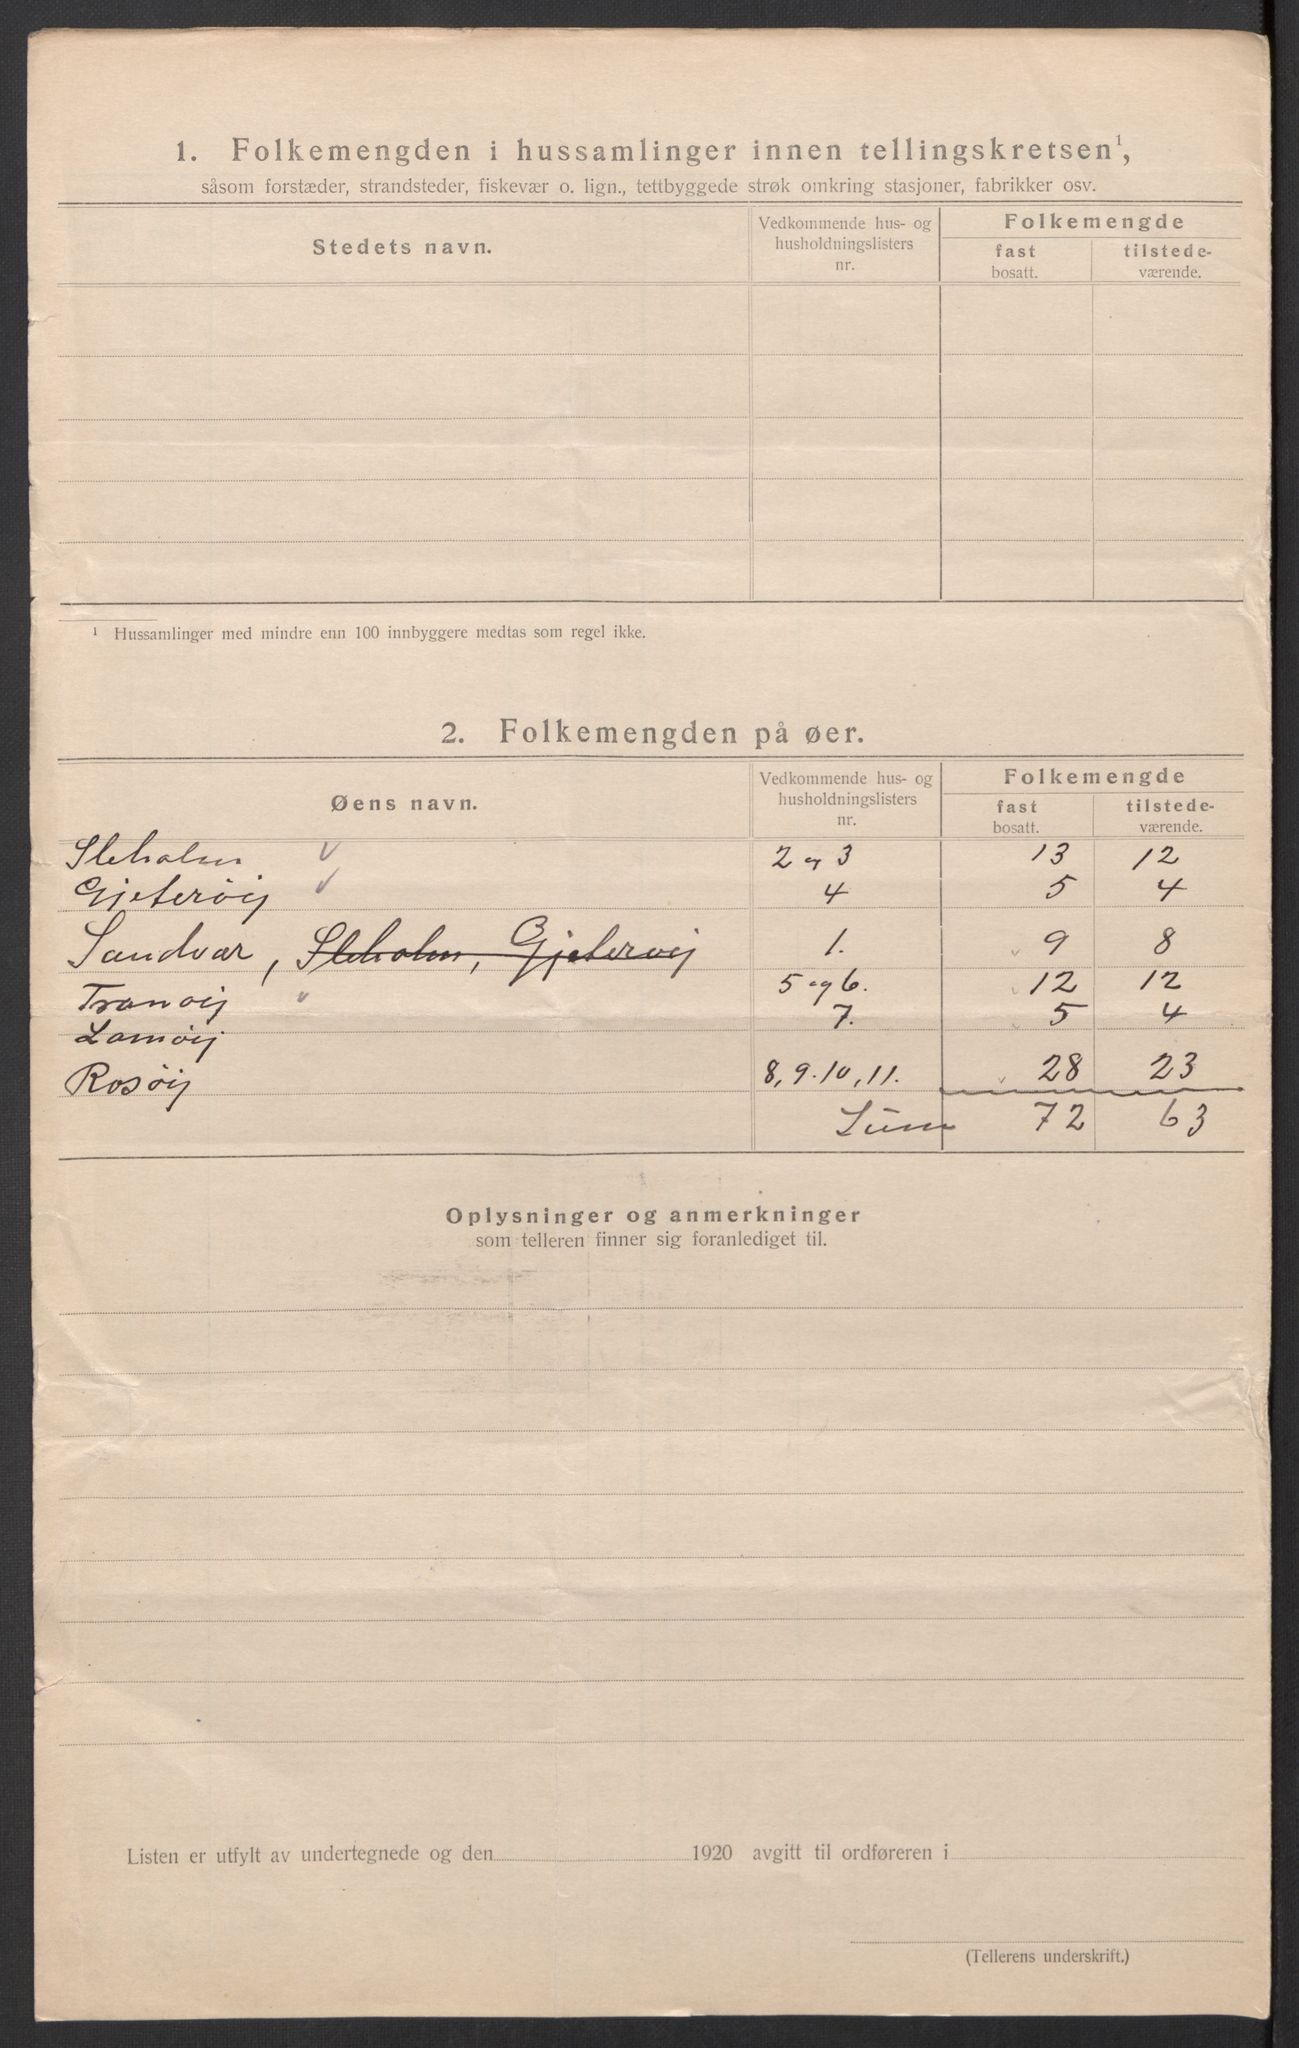 1. Folkemengden i hussamlinger innen tellingskretsen¹,
såsom forstæder, strandsteder, fiskevær o. lign., tettbyggede strøk omkring stasjoner, fabrikker osv.
Stedets navn.
Vedkommende hus- og
husholdningslisters
nr.
Folkemengde
fast
bosatt.
tilstede-
værende.
¹ Hussamlinger med mindre enn 100 innbyggere medtas som regel ikke.
2. Folkemengden på øer.
Øens navn.
Vedkommende hus- og
husholdningslisters
nr.
Folkemengde
fast
bosatt.
tilstede-
værende.
Sleholm 2 og 3 13 12
Gjeterøij 4 5 4
Sandvær, Sleholm, Gjeterøij 1. 9 8
Tranøij 5 og 6. 12 12
Lamøij 7. 5 4
Rosøij 8, 9. 10, 11. 28 23
Sum 72 63
Oplysninger og anmerkninger
som telleren finner sig foranlediget til.
Listen er utfylt av undertegnede og den 1920 avgitt til ordføreren i
(Tellerens underskrift.)